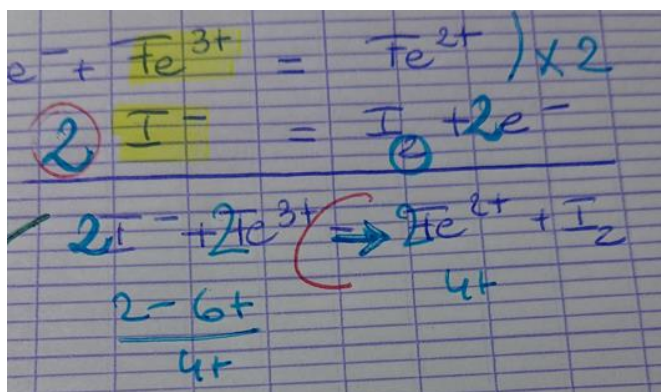 e⁻ + Fe³⁺ = Fe²⁺ ) ×2
2 I⁻ = I₂ + 2e⁻
2I⁻ + 2Fe³⁺ ⇒ 2Fe²⁺ + I₂
2- 6+ 4+
4+